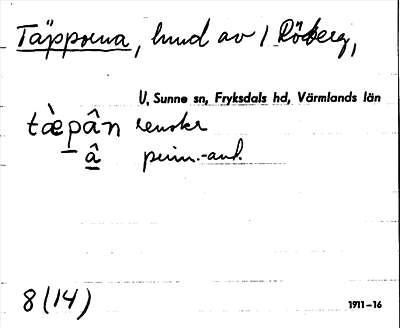 Täpporna, hmd av 1 Röberg,
U, Sunne sn, Fryksdals hd, Värmlands län
tæ̀pân
â
8(14)
1911–16